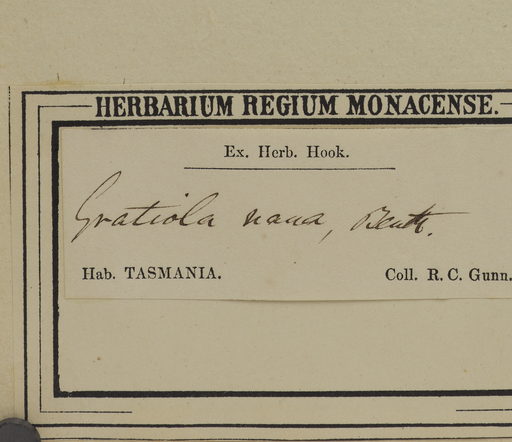 HERBARIUM REGIUM MONACENSE.
Ex. Herb. Hook.
Gratiola nana, Benth.
Hab. TASMANIA.
Coll. R. C. Gunn.